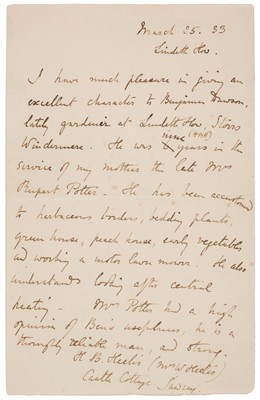 March 25. 33
Lindeth How.
I have much pleasure in giving an
excellent character to Benjamin Dawson,
lately gardener at Lindeth How, Storrs
Windermere. He was nine years in the
service of my mother the late Mrs
Rupert Potter. He has been accustomed
to herbaceous borders, bedding plants,
green house, peach house, early vegetables
and working a motor lawn mower. He also
understands looking after central
heating. Mrs Potter had a high
opinion of Ben's usefulness, he is a
thoroughly reliable man, and strong.
H. B. Heelis (Mrs W Heelis)
Castle Cottage Sawrey.